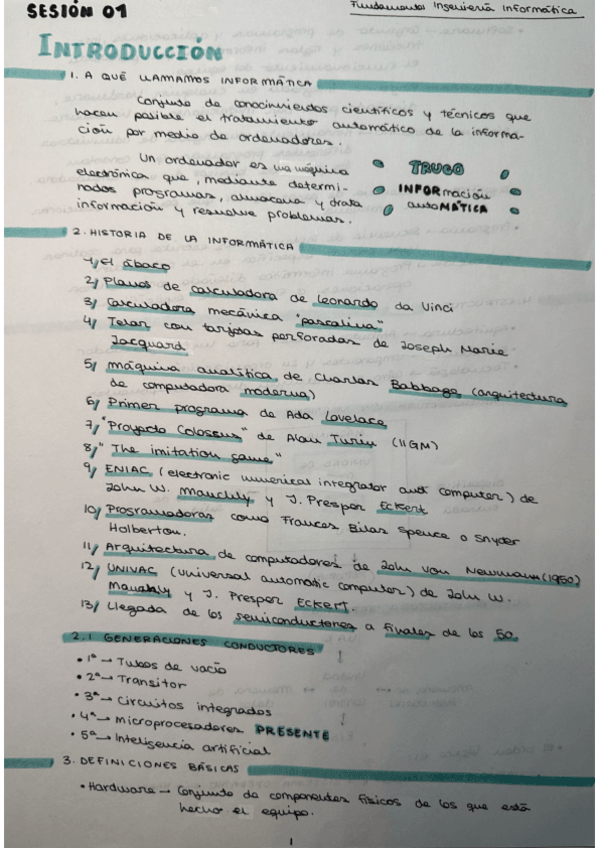 SESIÓN 01
Fundamentos Ingeniería Informática
INTRODUCCIÓN
1. A QUÉ LLAMAMOS INFORMÁTICA
Conjunto de conocimientos científicos y técnicos que
hacen posible el tratamiento automático de la informa-
ción por medio de ordenadores.
Un ordenador es una máquina
electrónica que, mediante determi-
nados programas, almacena y trata
información y resuelve problemas.
TRUCO
INFORmación
autoMÁTICA
2. HISTORIA DE LA INFORMÁTICA
1/ El ábaco
2/ Planos de calculadora de Leonardo da Vinci
3/ Calculadora mecánica "pascalina"
4/ Telar con tarjetas perforadas de Joseph Marie
Jacquard
5/ Máquina analítica de Charles Babbage (arquitectura
de computadora moderna)
6/ Primer programa de Ada Lovelace
7/ "Proyecto Colossus" de Alan Turin (IIGM)
8/ "The imitation game"
9/ ENIAC (electronic numerical integrator and computer) de
John W. Mauchly y J. Presper Eckert
10/ Programadoras como Frances Bilas Spence o Snyder
Holberton.
11/ Arquitectura de computadores de John von Newmann (1950)
12/ UNIVAC (universal automatic computer) de John W.
Maughly y J. Presper Eckert.
13/ Llegada de los semiconductores a finales de los 50.
2.1 GENERACIONES CONDUCTORES
• 1ª → Tubos de vacío
• 2ª → Transitor
• 3ª → Circuitos integrados
• 4ª → Microprocesadores PRESENTE
• 5ª → Inteligencia artificial
3. DEFINICIONES BÁSICAS
• Hardware → Conjunto de componentes físicos de los que está
hecho el equipo.
1